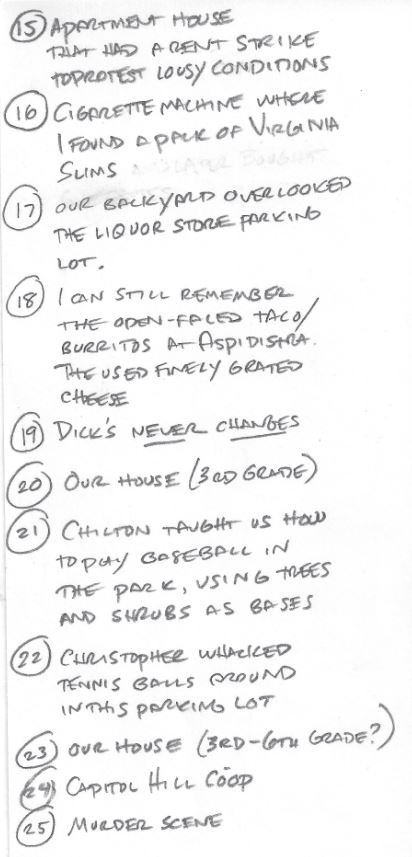 15 APARTMENT HOUSE
THAT HAD A RENT STRIKE
TO PROTEST LOUSY CONDITIONS
16 CIGARETTE MACHINE WHERE
I FOUND A PACK OF VIRGINIA
SLIMS
17 OUR BACKYARD OVERLOOKED
THE LIQUOR STORE PARKING
LOT.
18 I CAN STILL REMEMBER
THE OPEN-FACED TACO/
BURRITOS AT ASPIDISTRA.
THE USED FINELY GRATED
CHEESE
19 DICK'S NEVER CHANGES
20 OUR HOUSE (3RD GRADE)
21 CHILTON TAUGHT US HOW
TO PLAY BASEBALL IN
THE PARK, USING TREES
AND SHRUBS AS BASES
22 CHRISTOPHER WHACKED
TENNIS BALLS AROUND
IN THIS PARKING LOT
23 OUR HOUSE (3RD-6TH GRADE?)
24 CAPITOL HILL COOP
25 MURDER SCENE